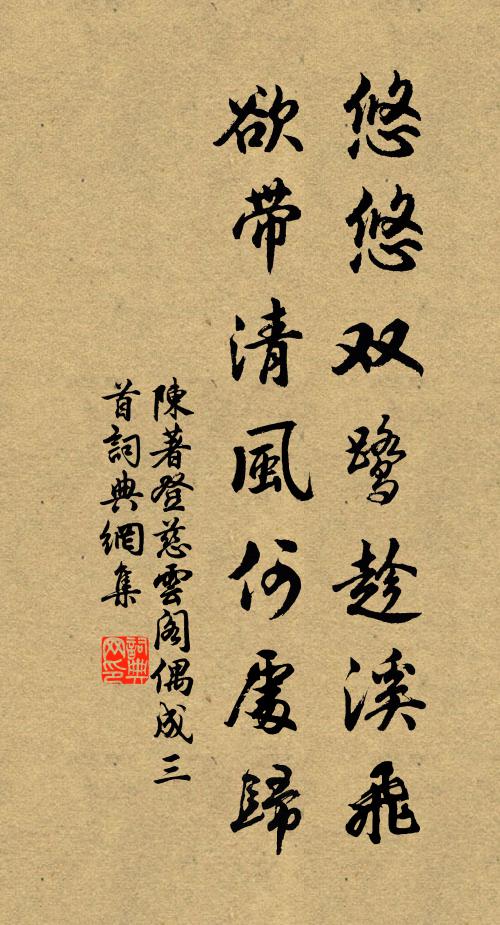 悠悠双鹭趁溪飛
欲带清風何處歸
陳著登慈雲閣偶成三
首詞典網集
詞典网印